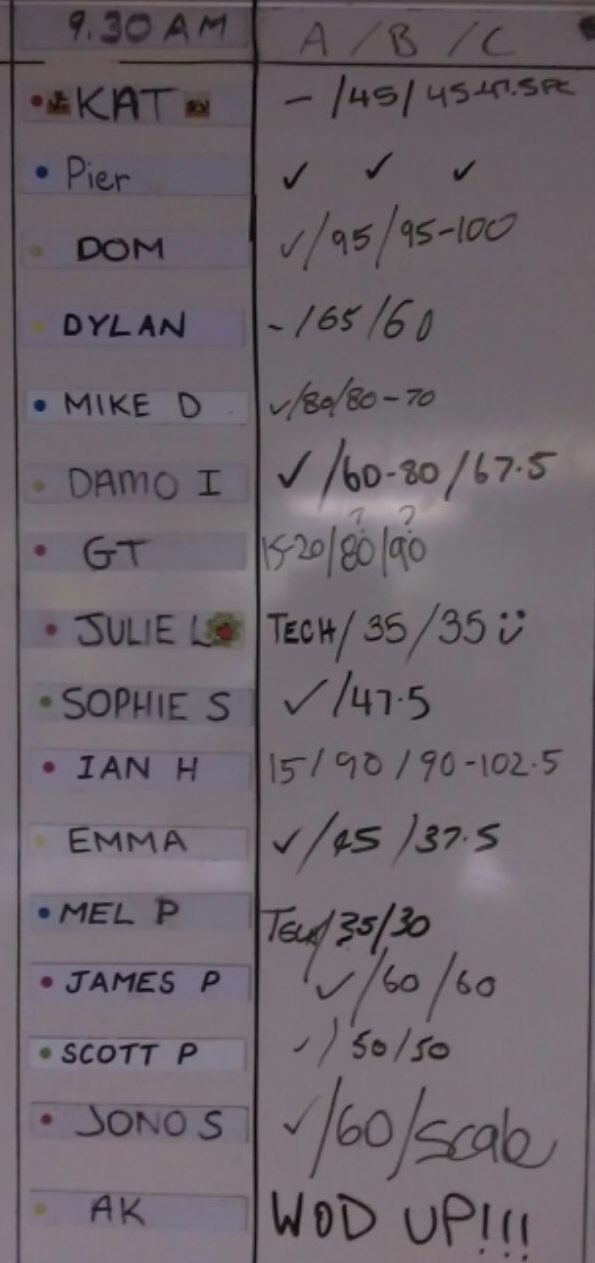 9.30 AM A / B / C
KAT - / 45 / 45-47.5
Pier ✓ ✓ ✓
DOM ✓/95/95-100
DYLAN - / 65 / 60
MIKE D ✓/80/80-70
DAMO I ✓/60-80/67.5
GT 15-20/80?/90?
JULIE L TECH/35/35
SOPHIE S ✓/47.5
IAN H 15/90/90-102.5
EMMA ✓/45/37.5
MEL P TECH/35/30
JAMES P ✓/60/60
SCOTT P ✓/50/50
JONO S ✓/60/scale
AK WOD UP!!!